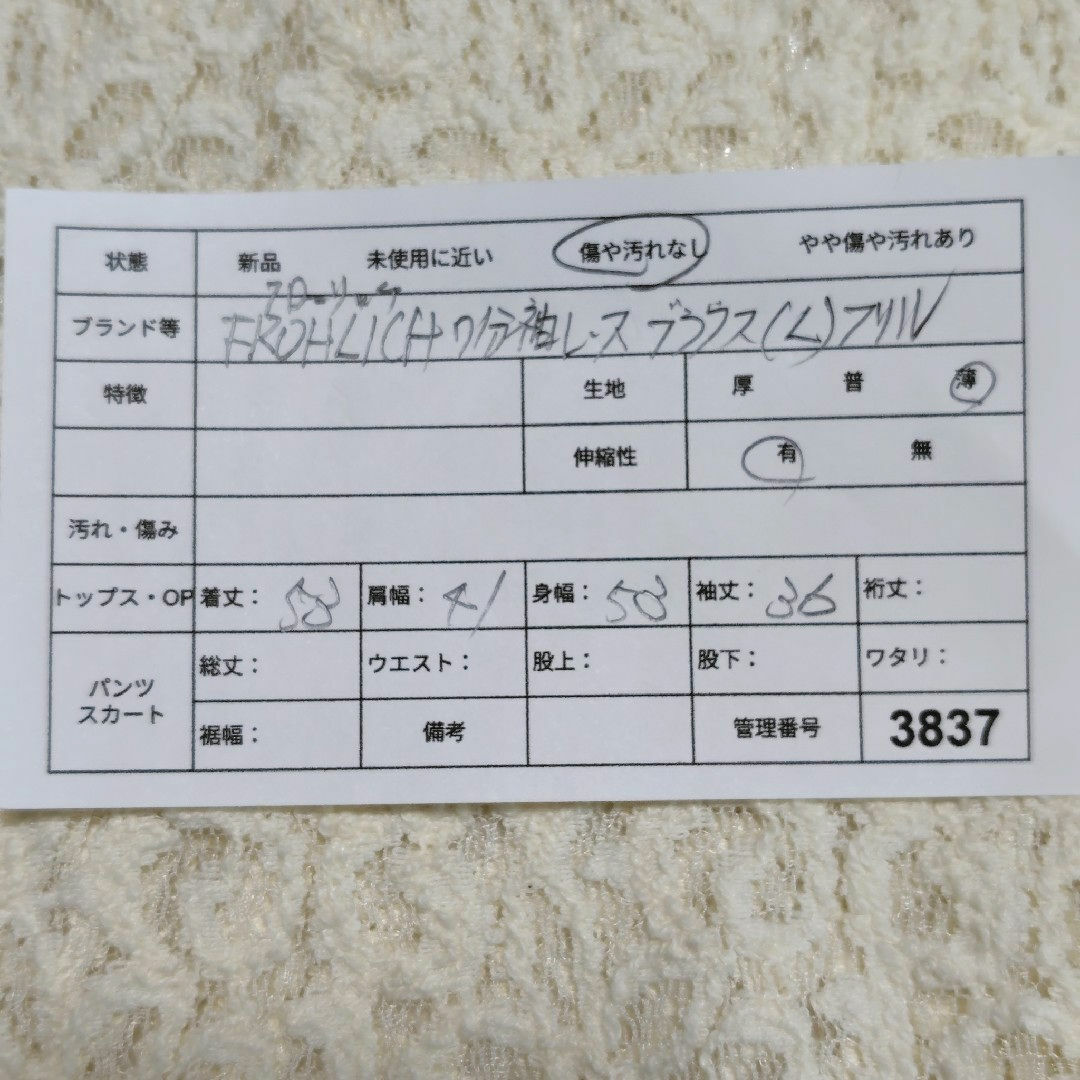 状態 新品 未使用に近い 傷や汚れなし やや傷や汚れあり
フローリッヒ
ブランド等 FROHLICH 7分袖レースブラウス(L)フリル
特徴 生地 厚 普 薄
伸縮性 有 無
汚れ・傷み
トップス・OP 着丈: 58 肩幅: 41 身幅: 50 袖丈: 36 裄丈:
パンツ 総丈: ウエスト: 股上: 股下: ワタリ:
スカート 裾幅: 備考 管理番号 3837